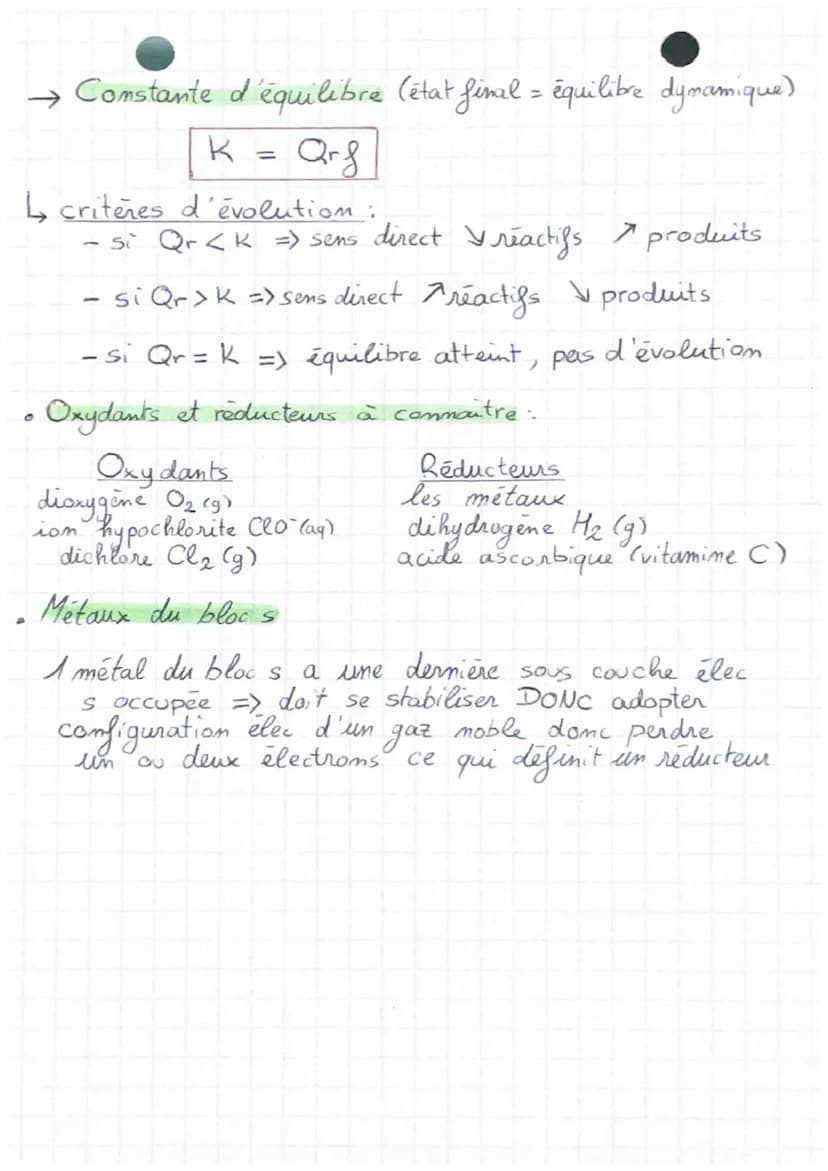 → Constante d'équilibre (état final = équilibre dynamique)
K = Qrf
↳ critères d'évolution :
- si Qr < K => sens direct ↘ réactifs ↗ produits
- si Qr > K => sens direct ↗ réactifs ↘ produits
- si Qr = K => équilibre atteint, pas d'évolution
• Oxydants et réducteurs à connaître :
Oxydants Réducteurs
dioxygène O2 (g) les métaux
ion hypochlorite ClO⁻ (aq) dihydrogène H2 (g)
dichlore Cl2 (g) acide ascorbique (vitamine C)
• Métaux du bloc s
1 métal du bloc s a une dernière sous couche élec
s occupée => doit se stabiliser DONC adopter
configuration élec d'un gaz noble donc perdre
un ou deux électrons ce qui définit un réducteur